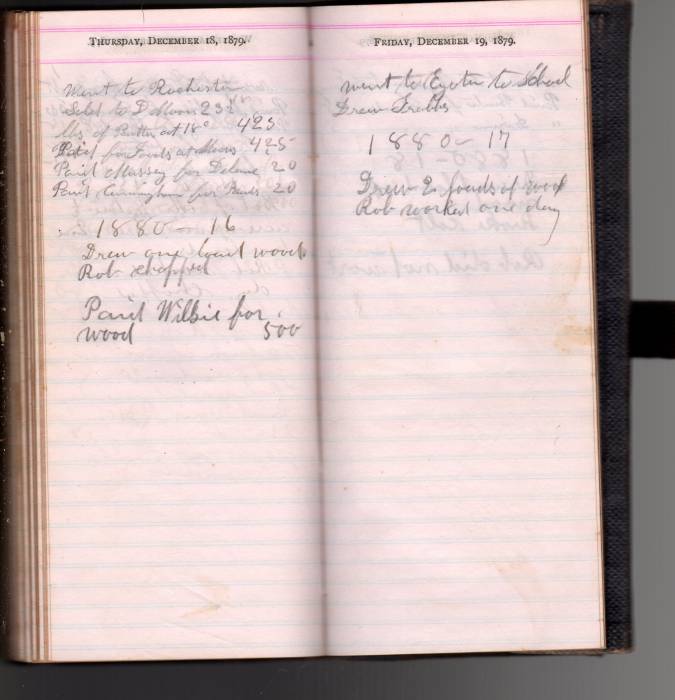 THURSDAY, DECEMBER 18, 1879.
Went to Rochester
Sold to D 23 1/2
lbs of Butter at 18c 423
Paid for at 425
Paid Massey for 20
Paid Cunningham for 20
1880 — 16
Drew one load wood
Rob chopped
Paid Wilbie for
wood 500
FRIDAY, DECEMBER 19, 1879.
went to Eyota to School
Drew
1880 - 17
Drew 2 loads of wood
Rob worked one day